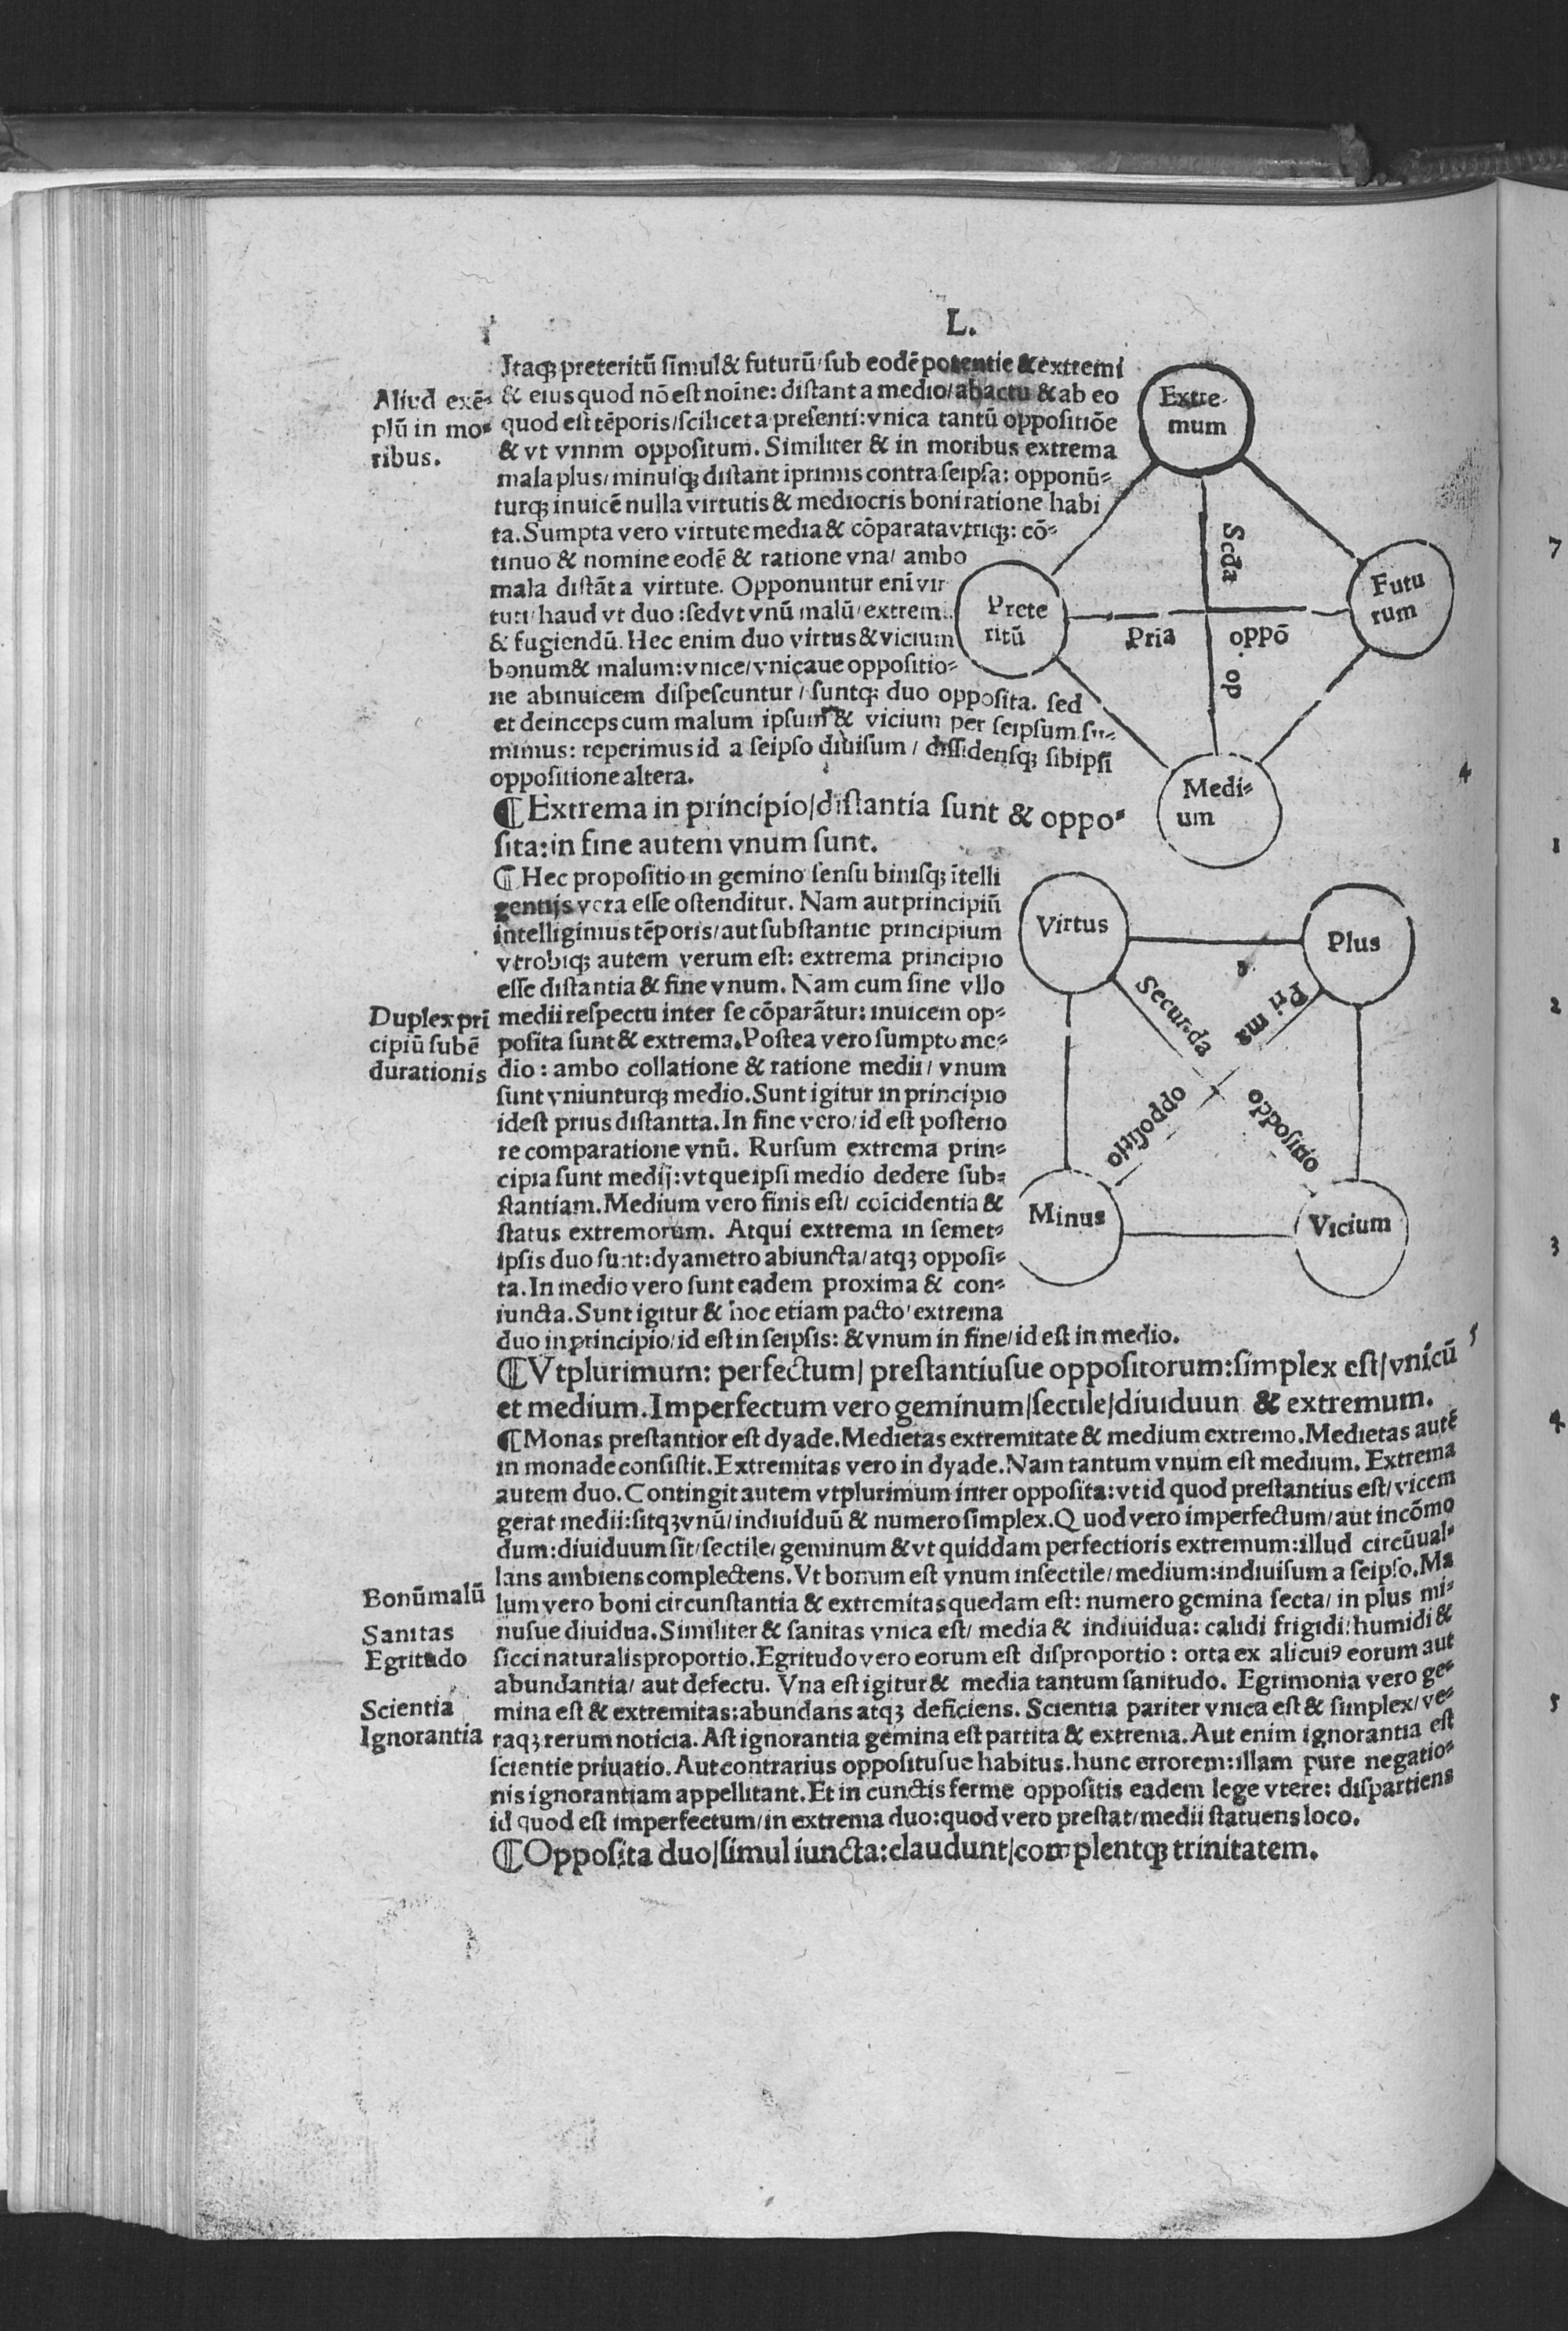 L.
Itaqꝫ preteritū simul & futurū/sub eodē potentie & extremi
& eius quod nō est noīne: distant a medio/ab actu & ab eo
quod est tēporis/scilicet a presenti: vnica tantū oppositiōe
& vt vnnm oppositum. Similiter & in moribus extrema
mala plus/minusqꝫ distant iprimis contra seipsa: opponū-
turqꝫ inuicē nulla virtutis & mediocris boni ratione habi
ta. Sumpta vero virtute media & cōparata vtriqꝫ: cō-
tinuo & nomine eodē & ratione vna/ ambo
mala distāt a virtute. Opponuntur eni vir
tuti/haud vt duo: sed vt vnū malū/extrem
& fugiendū. Hec enim duo virtus & vicium
bonum & malum: vnice/vnicaue oppositio-
ne abinuicem dispescuntur/suntqꝫ duo opposita. sed
et deinceps cum malum ipsum & vicium per seipsum su-
mimus: reperimus id a seipso diuisum/dissidensqꝫ sibipsi
oppositione altera.
Aliud exē-
plū in mo-
ribus.
Extre-
mum
Prete
ritū
Futu
rum
Medi-
um
Scda
op
Pria
oppō
¶ Extrema in principio/distantia sunt & oppo-
sita: in fine autem vnum sunt.
¶ Hec propositio in gemino sensu binisqꝫ ītelli
gentijs vera esse ostenditur. Nam aut principiū
intelligimus tēporis/aut substantie principium
vtrobiqꝫ autem verum est: extrema principio
esse distantia & fine vnum. Nam cum sine vllo
medii respectu inter se cōparātur: inuicem op-
posita sunt & extrema. Postea vero sumpto me-
dio: ambo collatione & ratione medii/ vnum
sunt vniunturqꝫ medio. Sunt igitur in principio
idest prius distantta. In fine vero/id est posterio
re comparatione vnū. Rursum extrema prin-
cipia sunt medij: vt que ipsi medio dedere sub-
stantiam. Medium vero finis est/ coīcidentia &
status extremorum. Atqui extrema in semet-
ipsis duo sunt: dyametro abiuncta/atqꝫ opposi-
ta. In medio vero sunt eadem proxima & con-
iuncta. Sunt igitur & hoc etiam pacto/extrema
duo in principio/id est in seipsis: & vnum in fine/id est in medio.
Duplex pri
cipiū subē
durationis
Virtus
Plus
Minus
Vicium
Secunda
oppositio
Pri ma
oppositio
¶ Vtplurimum: perfectum/ prestantiusue oppositorum: simplex est/vnicū
et medium. Imperfectum vero geminum/sectile/diuiduun & extremum.
¶ Monas prestantior est dyade. Medietas extremitate & medium extremo. Medietas autē
in monade consistit. Extremitas vero in dyade. Nam tantum vnum est medium. Extrema
autem duo. Contingit autem vtplurimum inter opposita: vt id quod prestantius est/vicem
gerat medii: sitqꝫ vnū/indiuiduū & numero simplex. Quod vero imperfectum/aut incōmo
dum: diuiduum sit/sectile/ geminum & vt quiddam perfectioris extremum: illud circūual-
lans ambiens complectens. Vt bonum est vnum insectile/medium: indiuisum a seipso. Ma
lum vero boni circunstantia & extremitas quedam est: numero gemina secta/in plus mi-
nusue diuidua. Similiter & sanitas vnica est/ media & indiuidua: calidi frigidi/humidi &
sicci naturalis proportio. Egritudo vero eorum est disproportio: orta ex alicuiꝰ eorum aut
abundantia/ aut defectu. Vna est igitur & media tantum sanitudo. Egrimonia vero ge-
mina est & extremitas: abundans atqꝫ deficiens. Scientia pariter vnica est & simplex/ve-
raqꝫ rerum noticia. Ast ignorantia gemina est partita & extrema. Aut enim ignorantia est
scientie priuatio. Aut contrarius oppositusue habitus. hunc errorem: illam pure negatio-
nis ignorantiam appellitant. Et in cunctis ferme oppositis eadem lege vtere: dispartiens
id quod est imperfectum/in extrema duo: quod vero prestat/medii statuens loco.
Bonū malū
Sanitas
Egritudo
Scientia
Ignorantia
¶ Opposita duo/simul iuncta: claudunt/complentqꝫ trinitatem.
4
5
7
1
2
3
4
5